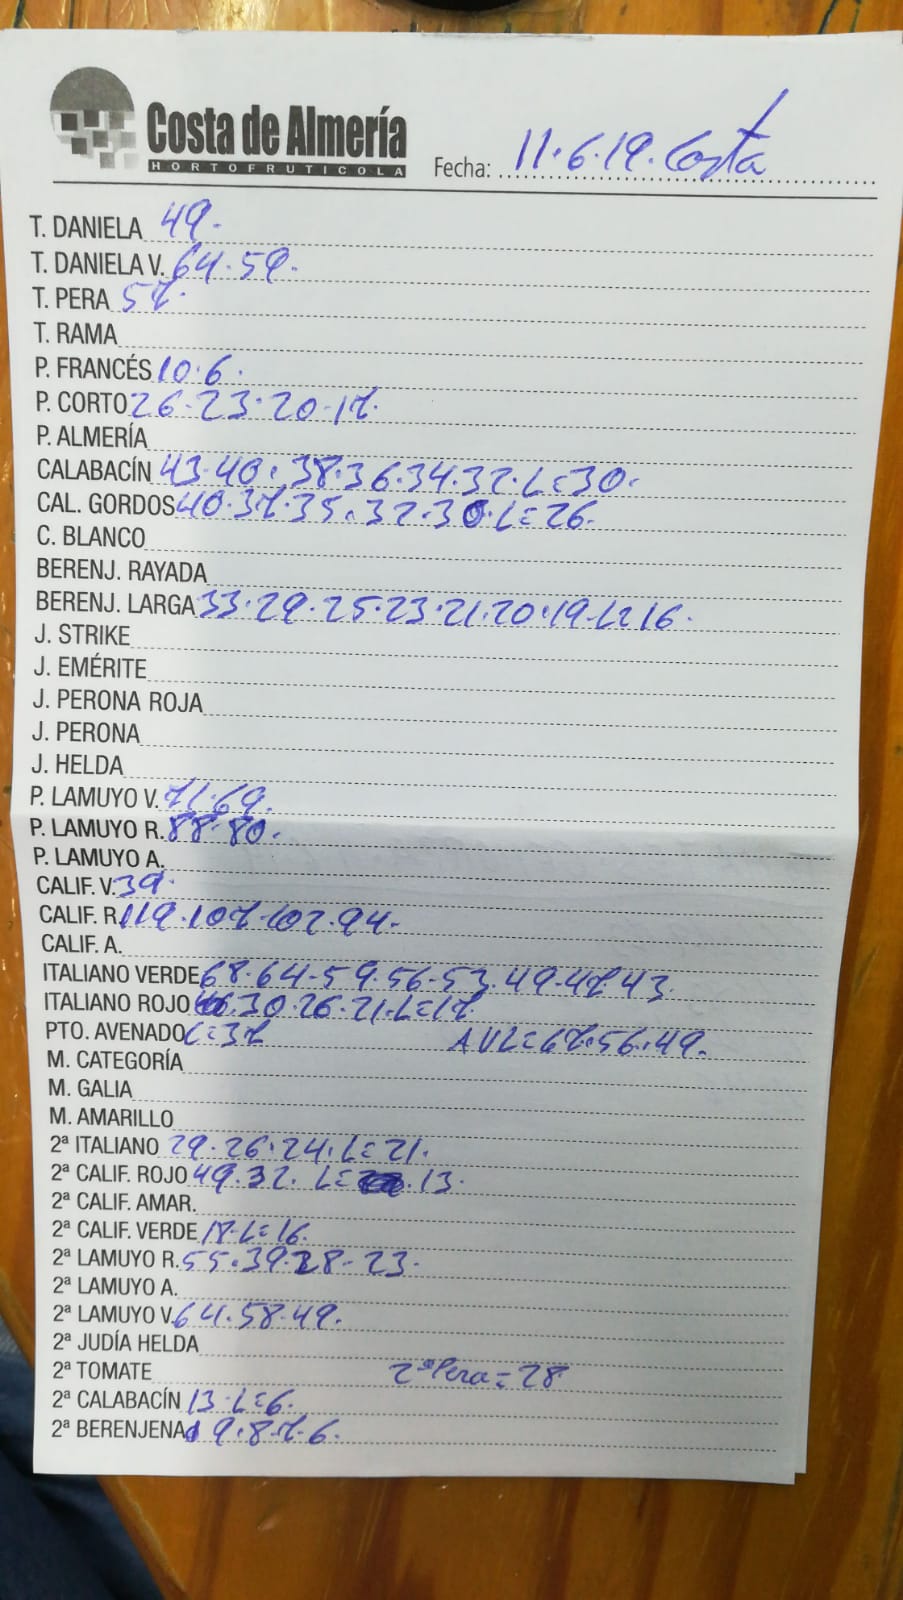 Costa de Almería
HORTOFRUTICOLA
Fecha: 11.6.19. Costa
T. DANIELA 49.
T. DANIELA V. 64.59.
T. PERA 57.
T. RAMA
P. FRANCÉS 10.6.
P. CORTO 26.23.20.17.
P. ALMERÍA
CALABACÍN 43.40.38.36.34.32.L=30.
CAL. GORDOS 40.37.35.32.30.L=26.
C. BLANCO
BERENJ. RAYADA
BERENJ. LARGA 33.29.25.23.21.20.19.L=16.
J. STRIKE
J. EMÉRITE
J. PERONA ROJA
J. PERONA
J. HELDA
P. LAMUYO V. 71.69.
P. LAMUYO R. 88.80.
P. LAMUYO A.
CALIF. V. 39.
CALIF. R. 119.107.102.94.
CALIF. A.
ITALIANO VERDE 68.64.59.56.53.49.47.43.
ITALIANO ROJO 30.26.21.L=17.
PTO. AVENADO L=37 AVL=67.56.49.
M. CATEGORÍA
M. GALIA
M. AMARILLO
2ª ITALIANO 29.26.24.L=21.
2ª CALIF. ROJO 49.32. L=.13.
2ª CALIF. AMAR.
2ª CALIF. VERDE L=16.
2ª LAMUYO R. 55.39.28.23.
2ª LAMUYO A.
2ª LAMUYO V. 64.58.49.
2ª JUDÍA HELDA
2ª TOMATE 2ª Pera=28
2ª CALABACÍN 13.L=6.
2ª BERENJENA 9.8.7.6.